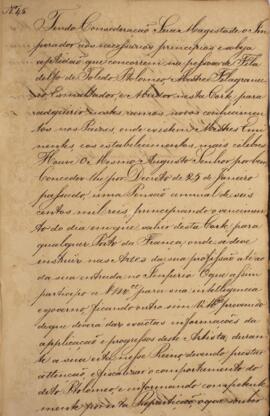 Nº 45
Tendo Consideração Sua Magestade o Im
perador aos necessarios principios e sobeja
aptidão que concorrem na pessoa de Fila
delfo de Toledo Ptolomeo, Mestre Filagranei
ro e Abridor nesta Corte, para
adquirir nestes ramos novos conhecimen
tos nos Paizes, onde existem Mestres Emi
nentes, e os estabelecimentos mais celebres
Houve O Mesmo Augusto Senhor por bem
Conceder lhe por Decreto de 25 de Janeiro
passado uma Pensão annual de seis
centos mil reis, principiando o vencimen
to do dia em que sahir desta Corte para
qualquer Porto da França, onde se deve
instruir nas Artes da sua profissão até ao
da sua entrada no Imperio. O que assim
participo a V. Mce. para sua intelligencia
e governo, ficando outro sim V. Mce. prevenido
de que deverá dar exactas informações da
applicação e progressos deste Artista, duran
te a sua estada nesse Reino, devendo prestar
attenção, e fiscalizar o comportamento do
dito Ptolomeo, e informando competente
mente por esta Repartição o que souber